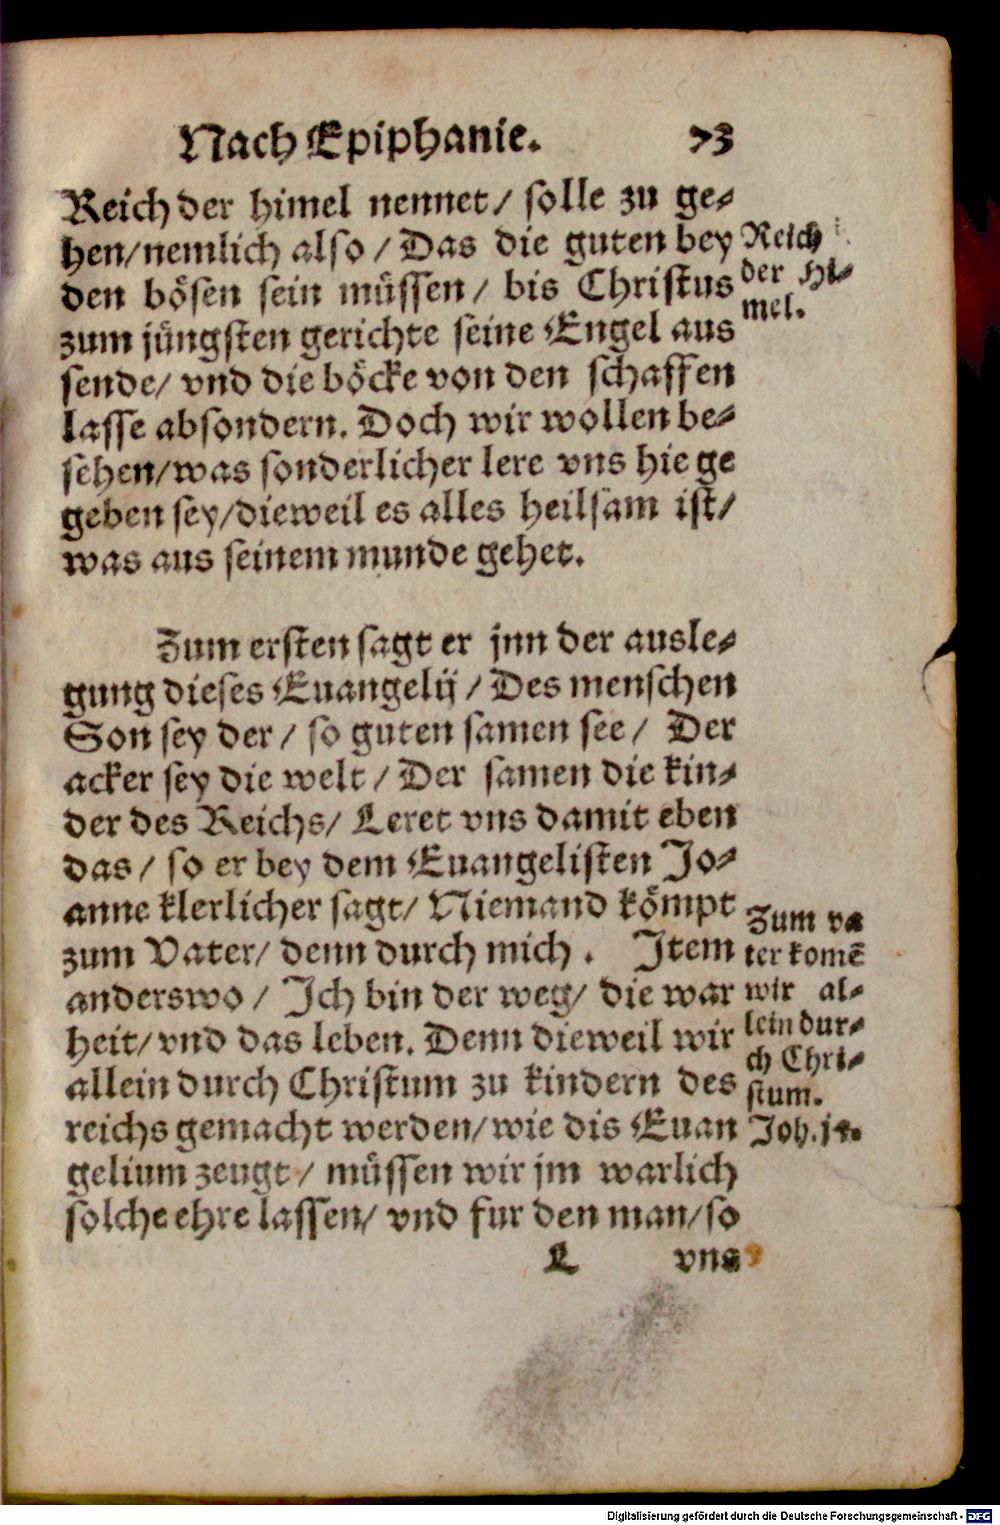 Nach Epiphanie. 73
Reich der himel nennet/ solle zu ge⸗
hen/nemlich also/ Das die guten bey
den bösen sein müssen/ bis Christus
zum jüngsten gerichte seine Engel aus
sende/ vnd die böcke von den schaffen
lasse absondern. Doch wir wollen be⸗
sehen/was sonderlicher lere vns hie ge
geben sey/dieweil es alles heilsam ist/
was aus seinem munde gehet.
Reich
der Hi⸗
mel.
Zum ersten sagt er jnn der ausle⸗
gung dieses Euangelij/ Des menschen
Son sey der/ so guten samen see/ Der
acker sey die welt/ Der samen die kin⸗
der des Reichs/ Leret vns damit eben
das/ so er bey dem Euangelisten Jo⸗
anne klerlicher sagt/ Niemand kömpt
zum Vater/ denn durch mich. Item
anderswo/ Ich bin der weg/ die war
heit/vnd das leben. Denn dieweil wir
allein durch Christum zu kindern des
reichs gemacht werden/wie dis Euan
gelium zeugt/ müssen wir jm warlich
solche ehre lassen/ vnd fur den man/so
Zum va
ter komē
wir al⸗
lein dur⸗
ch Chri⸗
stum.
Joh. 14.
L vns
Digitalisierung gefördert durch die Deutsche Forschungsgemeinschaft - DFG